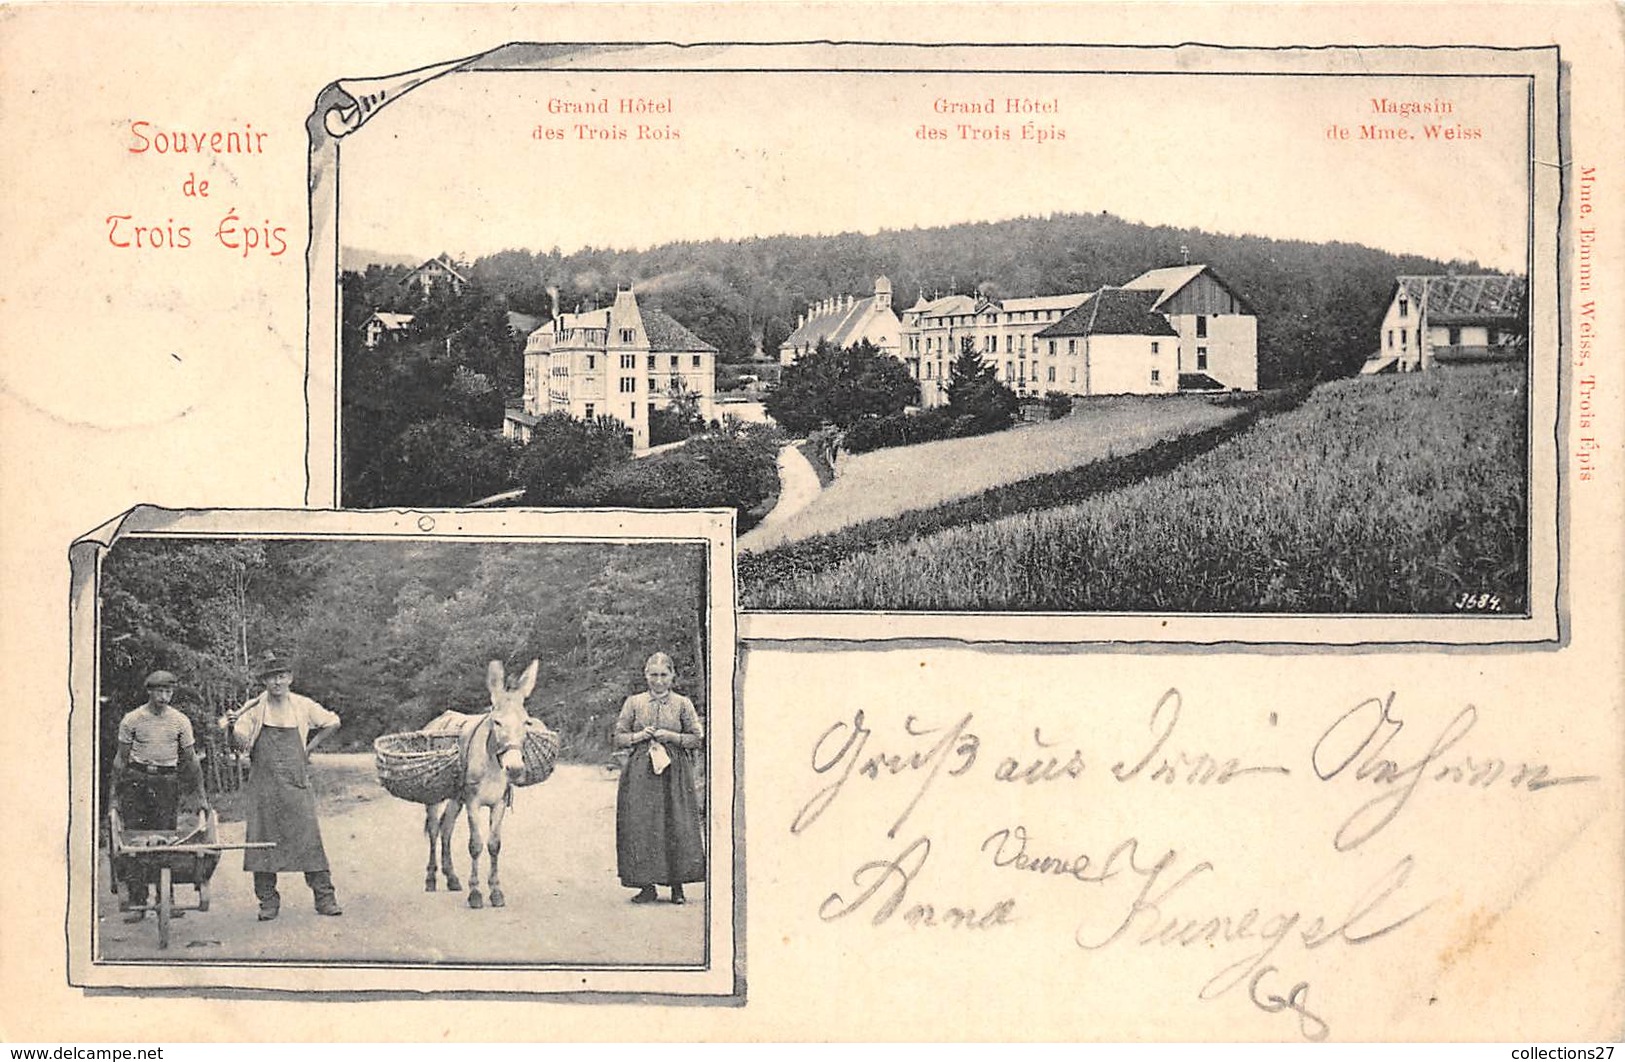 Souvenir
de
Trois Épis
Grand Hôtel
des Trois Rois
Grand Hôtel
des Trois Épis
Magasin
de Mme. Weiss
Mme. Emma Weiss, Trois Épis
3684.
Gruß aus Drei Aehren
Veuve
Anna Kunegel
68
www.delcampe.net
collections27